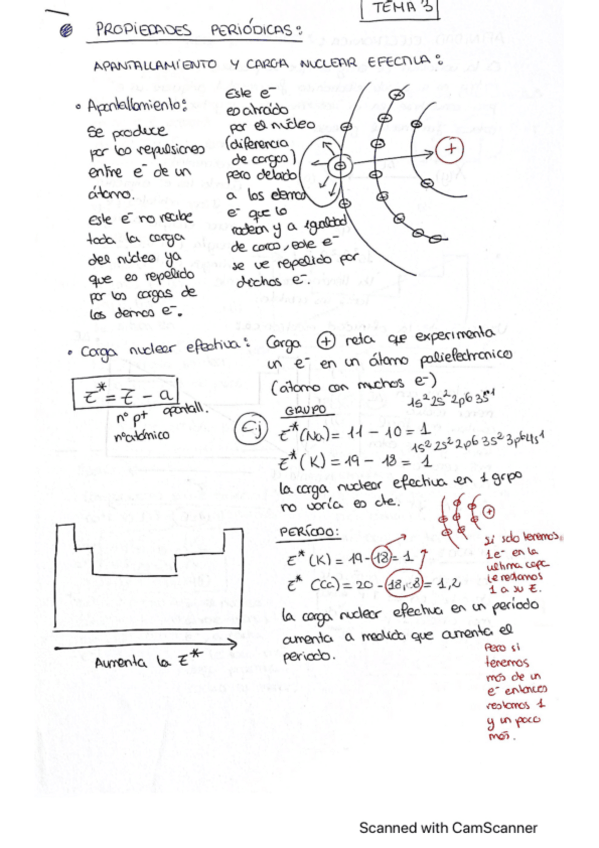 TEMA 3
PROPIEDADES PERIÓDICAS:
APANTALLAMIENTO Y CARGA NUCLEAR EFECTIVA:
• Apantallamiento:
Se produce
por las repulsiones
entre e⁻ de un
átomo.
Este e⁻ no recibe
toda la carga
del núcleo ya
que es repelido
por las cargas de
los demas e⁻.
Este e⁻
es atraido
por el núcleo
(diferencia
de cargas)
pero debido
a los demas
e⁻ que lo
rodean y a igualdad
de carga, este e⁻
se ve repelido por
dichos e⁻.
+
• Carga nuclear efectiva: Carga + neta que experimenta
un e⁻ en un átomo polielectronico
(átomo con muchos e⁻)
Z* = Z - a
nº p⁺ apantall.
nº atómico
Ej
GRUPO
1s² 2s² 2p6 3s¹
Z*(Na) = 11 - 10 = 1
1s² 2s² 2p6 3s² 3p6 4s1
Z*(K) = 19 - 18 = 1
la carga nuclear efectiva en 1 grpo
no varía es cte.
+
PERÍODO:
Z* (K) = 19 - 18 = 1
Z* (Ca) = 20 - 18,8 = 1,2
la carga nuclear efectiva en un período
aumenta a medida que aumenta el
periodo.
Si solo tenemos
1e⁻ en la
ultima capa
le restamos
1 a su Z.
Pero si
tenemos
más de un
e⁻ entonces
restamos 1
y un poco
más.
Aumenta la Z*
Scanned with CamScanner